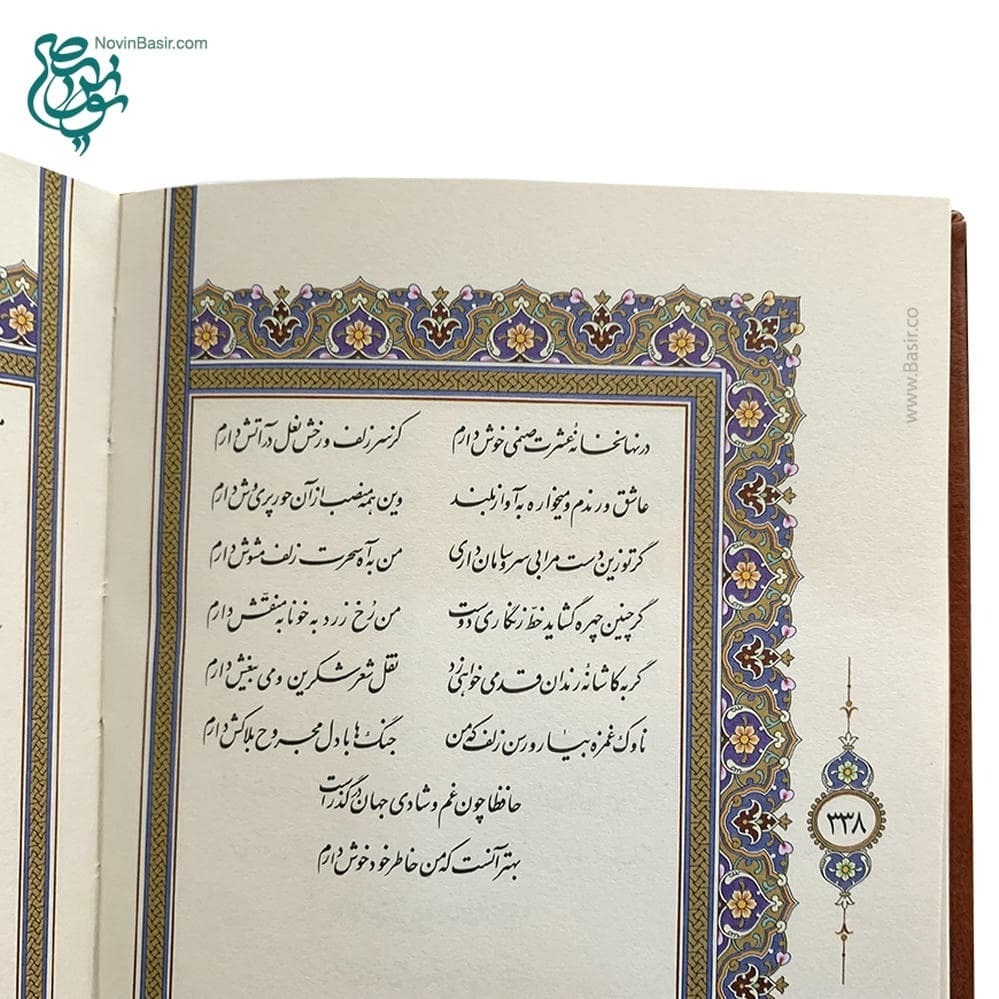 NovinBasir.com
www.Basir.co
در نهانخانهٔ عشرت صنمی خوش دارم کز سر زلف و رخش نعل در آتش دارم
عاشق و رندم و میخواره به آواز بلند وین همه منصب از آن حور پری وش دارم
گر تو زین دست مرا بی سر و سامان داری من به آه سحرت زلف مشوش دارم
گر چنین چهره گشاید خطّ زنگاری دوست من رُخ زرد به خونابه منقّش دارم
گر به کاشانهٔ رندان قدمی خواهی زد نقل شعر شکرین و می بیغش دارم
ناوک غمزه بیار و رسن زلف که من جنگ ها با دل مجروح بلاکش دارم
حافظا چون غم و شادی جهان در گذر است
بهتر آنست که من خاطر خود خوش دارم
۳۳۸